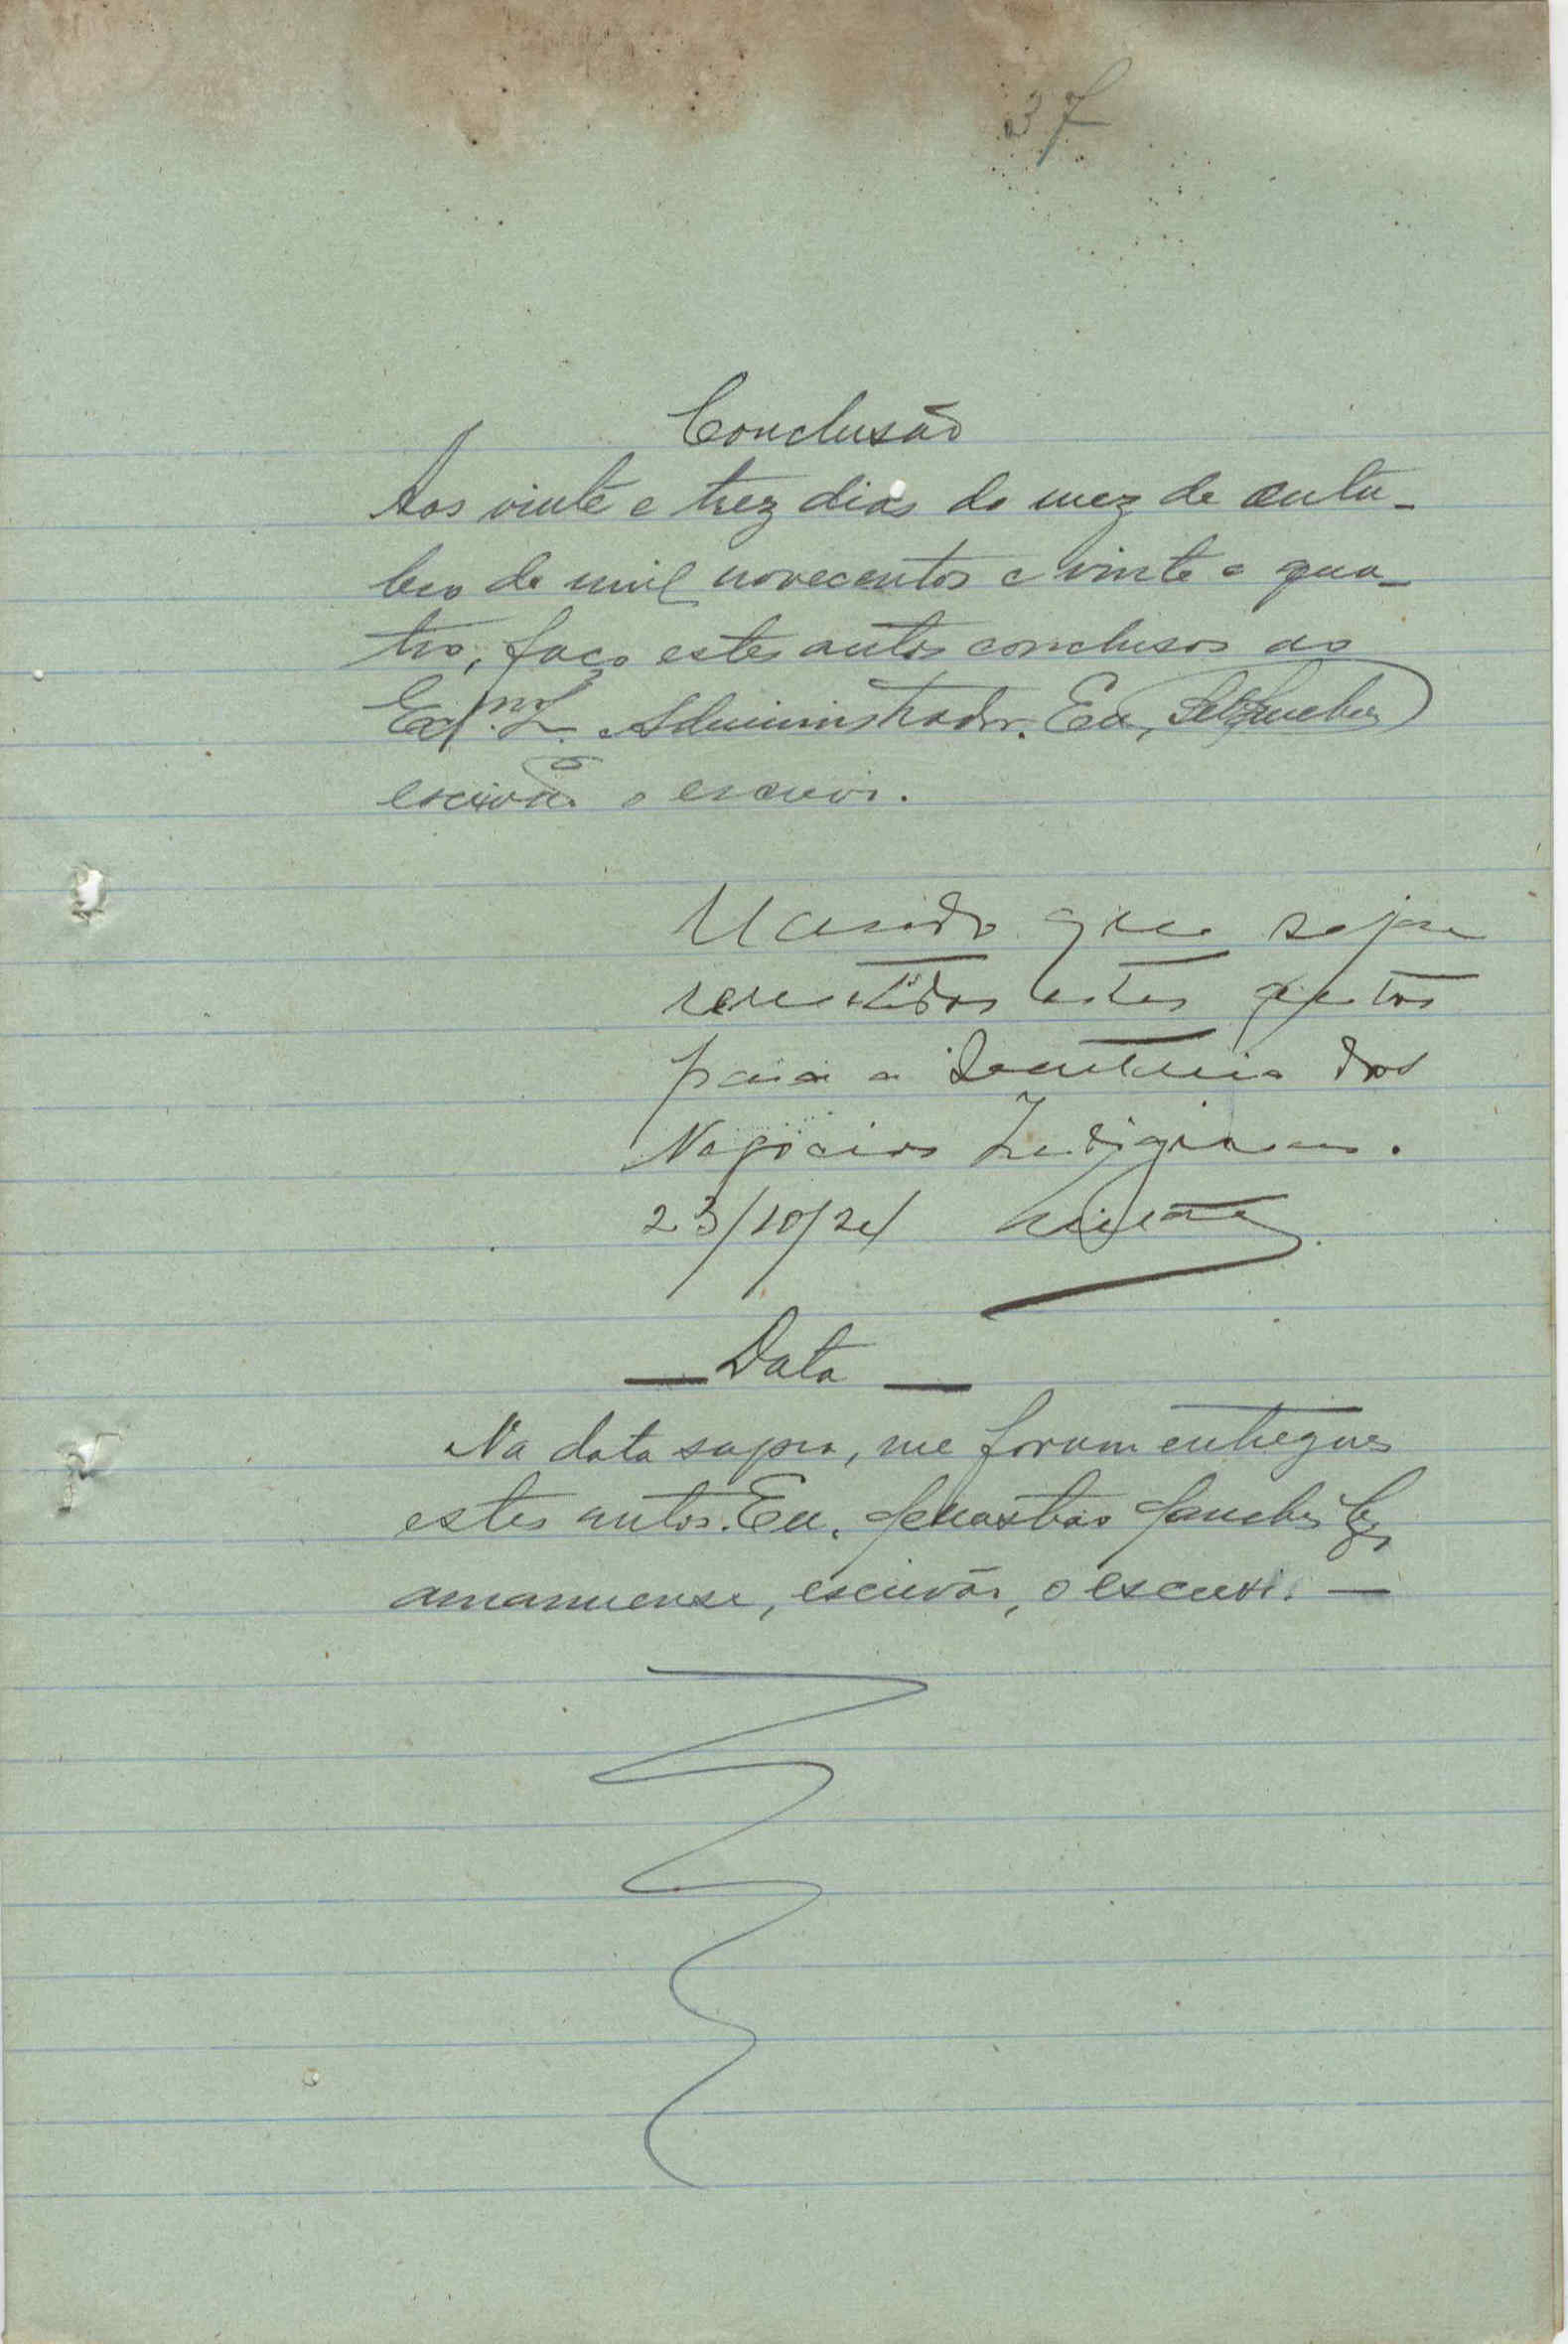 37
Conclusão
Aos vinte e trez dias do mez de outu-
bro de mil novecentos e vinte e qua-
tro, faço estes autos conclusos ao
Ex.mo Administrador. Eu,
escrivão o escrevi.
Mando que sejam
remetidos estes autos
para a Secretaria dos
Negocios Indigenas.
23/10/24
— Data —
Na data supra, me foram entregues
estes autos. Eu, Sebastião Sanches
amanuense, escrivão, o escrevi. —